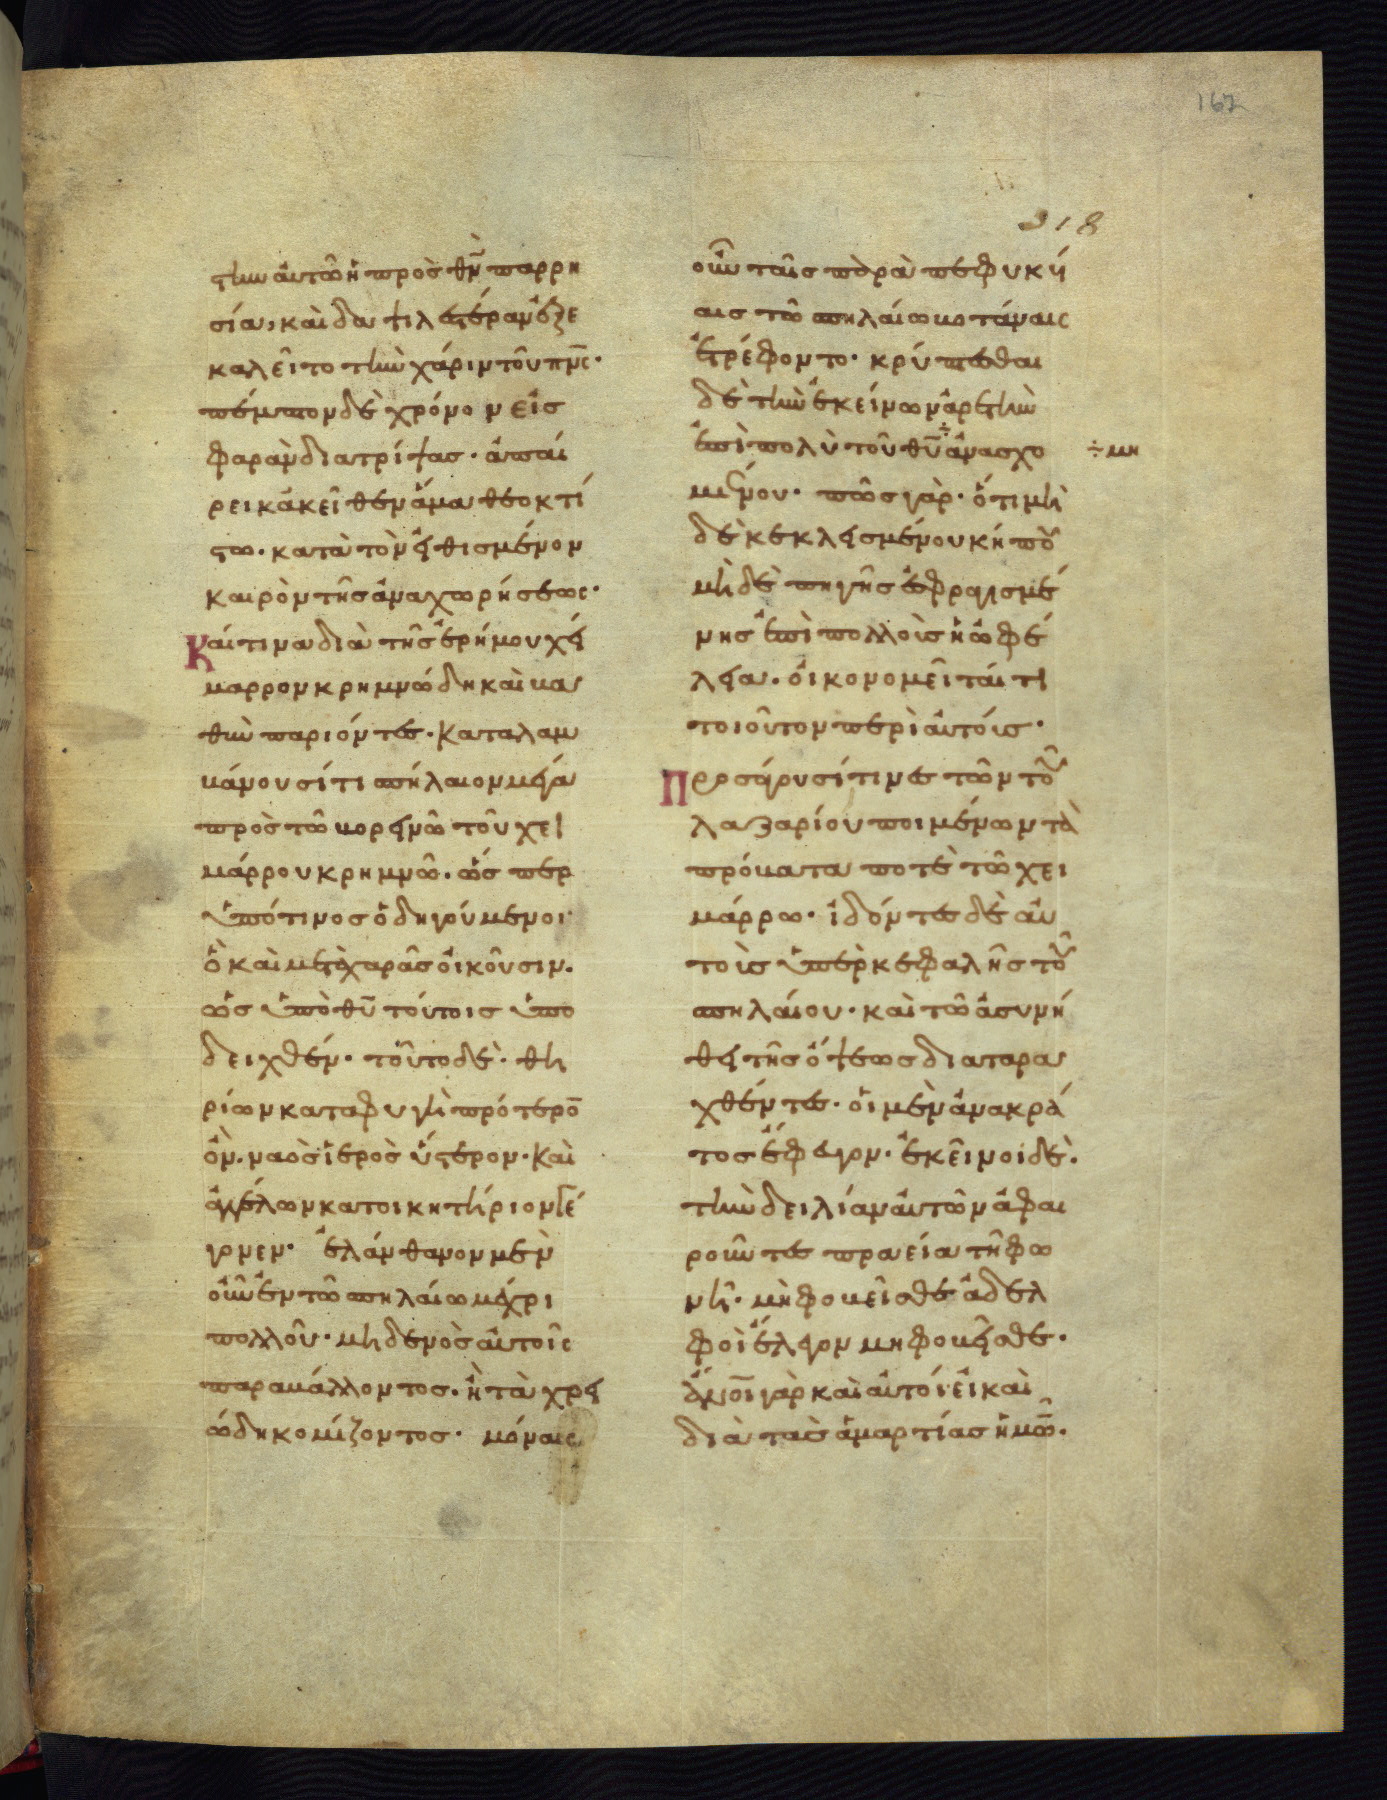 167
318
στιν αὐτῶ ἡ πρὸς θν̅ παρρη
σία, καὶ δαψιλεστέραν ἐξε
καλεῖτο τὴν χάριν τοῦ πνς̅·
πέμπτον δὲ χρόνον εἰς
φαρὰν διατρίψας· ἀπαί
ρει κἀκεῖθεν ἅμα θεοκτί
στω· κατὰ τὸν εἰθισμένον
καιρὸν τῆς ἀναχωρήσεως·
Καί τινα διὰ τῆς ἐρήμου χεί
μαρρον κρημνώδη καὶ βα
θὺν παριόντες· καταλαμ
βάνουσί τι σπήλαιον μέγα
πρὸς τῶ βορεινῶ τοῦ χει
μάρρου κρημνῶ· ὥσπερ
ὑπό τινος ὁδηγούμενοι·
ὃ καὶ μετὰ χαρᾶς οἰκοῦσιν·
ὡς ὑπὸ θυ̅ τούτοις ὑπο
δειχθέν· τοῦτο δὲ· θη
ρίων καταφυγὴ πρότερο̅
ὂν· ναὸς ἱερὸς ὕστερον· καὶ
ἀγγέλων κατοικητήριον γέ
γονεν· ἐλάνθανον μὲν
οὖν ἐν τῶ σπηλαίω μέχρι
πολλοῦ· μηδενὸς αὐτοῖς
παραβάλλοντος· ἢ τὰ χρει
ώδη κομίζοντος· μόναις
οὖν ταῖς παραπεφυκυί
αις τῶ σπηλαίω βοτάναις
ἐτρέφοντο· κρύπτεσθαι
δὲ τὴν ἐκείνων ἀρετὴν
ἐπὶ πολὺ τοῦ θυ̅ ÷ ἀνασχο
÷ μη
μένου· πῶς γὰρ· ὅτι μη
δὲ κεκλεισμένου κήπου
μηδὲ πηγῆς ἐσφραγισμέ
νης ἐπὶ πολλοῖς ἡ ὠφέ
λεια· οἰκονομεῖταί τι
τοιοῦτον περὶ αὐτούς·
Προσάγουσί τινες τῶν τοῦ
λαζαρίου ποιμένων τὰ
πρόβατα ποτὲ τῶ χει
μάρρω· ἰδόντες δὲ αὐ
τοὺς ὑπὲρ κεφαλῆς τοῦ
σπηλαίου· καὶ τῶ ἀσυνή
θει τῆς ὄψεως διαταρα
χθέντες· οἱ μὲν ἀνὰ κρά
τος ἔφευγον· ἐκεῖνοι δὲ·
τὴν δειλίαν αὐτῶν ἀφαι
ροῦντες πραεία τῆ φω
νῆ· μὴ φοβεῖσθε ἀδελ
φοὶ ἔλεγον μὴ φοβεῖσθε·
ἄνοι̅ γὰρ καὶ αὐτοί εἰ καὶ
διὰ τὰς ἁμαρτίας ἡμῶ̅·